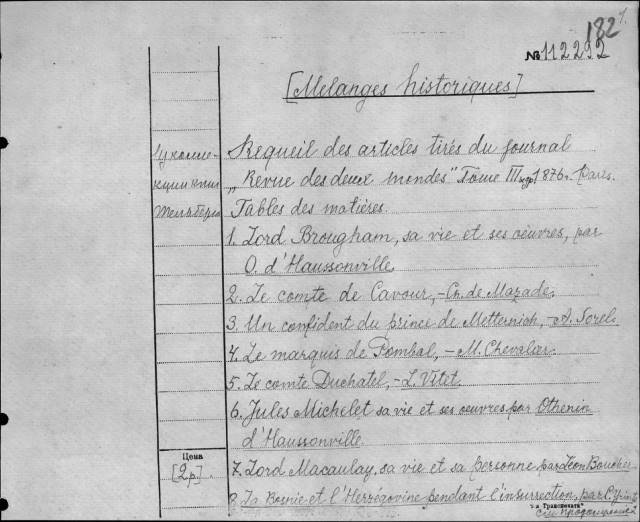 182
№ 112292
[Mélanges historiques]
Requeil des articles tirés du journal
„Revue des deux mondes" Tome III 1876. Paris.
Tables des matiéres.
1. Lord Brougham, sa vie et ses oeuvres, par
O. d'Haussonville.
2. Le comte de Cavour, - Ch. de Mazade.
3. Un confident du prince de Metternich, - A. Sorel.
4. Le marquis de Pombal, - M. Chevalier.
5. Le comte Duchatel, - L. Vitet.
6. Jules Michelet sa vie et ses oeuvres par Othenin
d'Haussonville.
Цена
[2р]
7. Lord Macaulay, sa vie et sa personne par Leon Boucher
8. La Bosnie et l'Herzégovine pendant l'insurrection, par